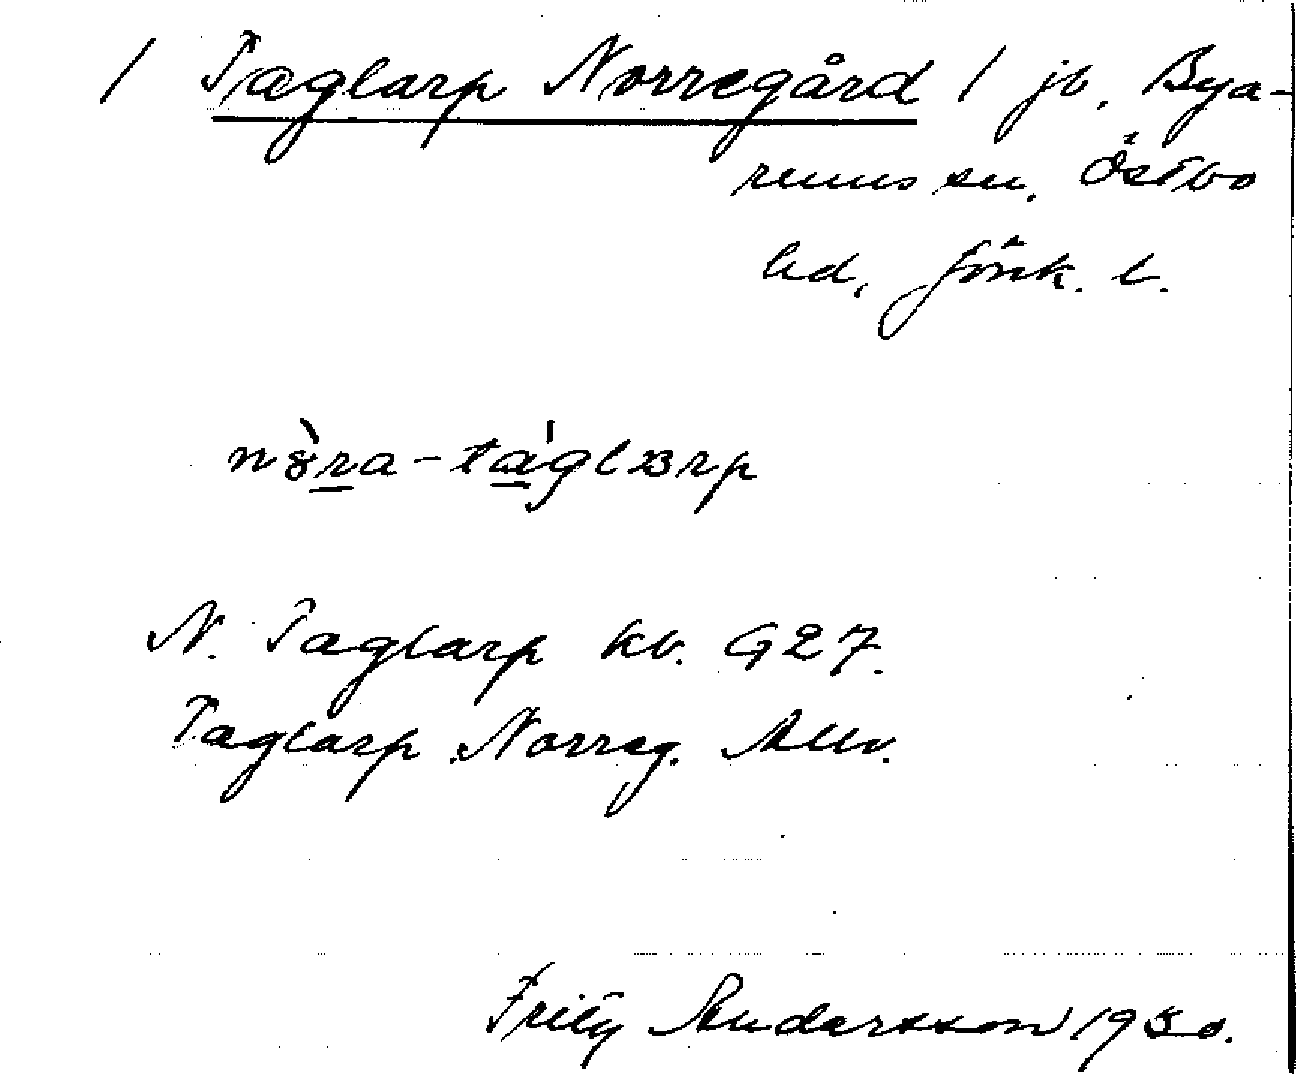 / Taglarp Norregård / jb. Bya-
rums sn. Östbo
hd, Jönk. l.
nòra-táglarp
N. Taglarp kb. G27.
Taglarp Norreg. Allv.
Andersson 1930.